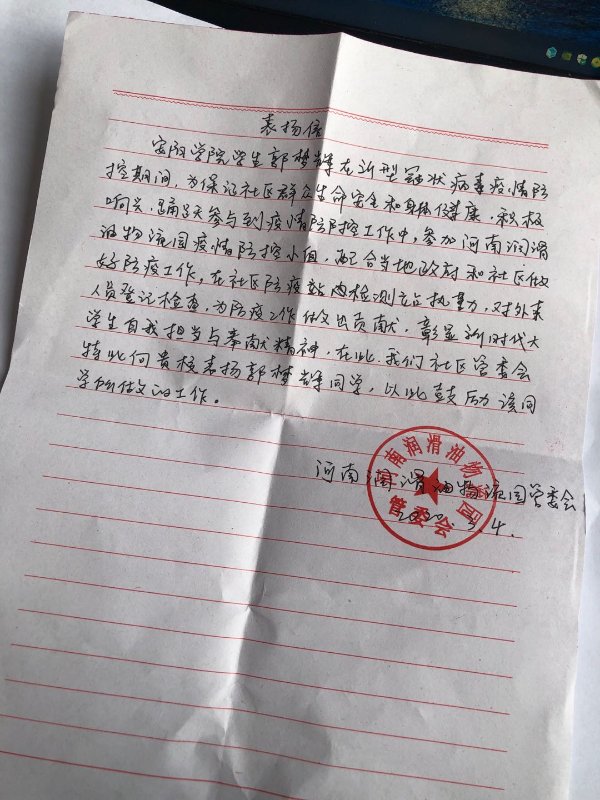 表扬信
安阳学院学生郭梦辉在新型冠状病毒疫情防
控期间,为保证社区群众生命安全和身体健康,积极
响应,踊跃参与到疫情防控工作中,参加河南润滑
油物流园疫情防控小组,配合当地政府和社区做
好防疫工作,在社区防疫站内检测点执勤,对外来
人员登记检查,为防疫工作做出贡献,彰显新时代大
学生自我担当与奉献精神,在此,我们社区管委会
特此向贵校表扬郭梦辉同学,以此鼓励该同
学所做的工作。
河南润滑油物流园管委会
2020.3.4.
河南润滑油物流园
管委会